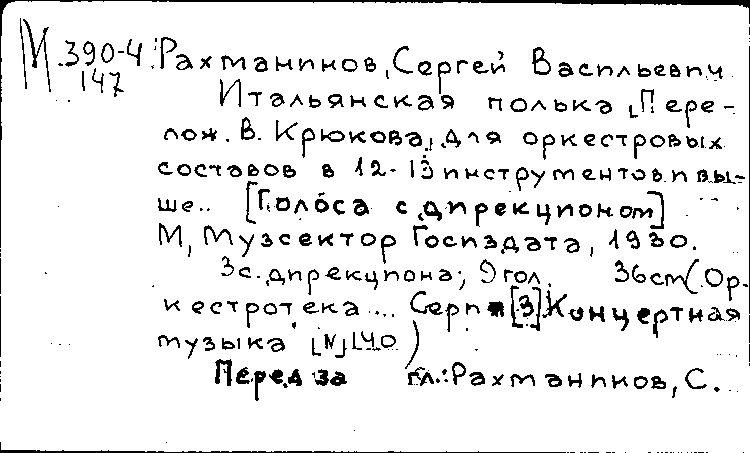 М.390-4 Рахманинов, Сергей Васильевич
147
Итальянская полька [Пере-
лож. В. Крюкова] для оркестровых
составов в 12-13 инструментов и вы-
ше.. [Голоса с дирекционом]
М, Музсектор Госиздата, 1930.
3с. дирекциона; 9 гол. 36 см (Ор-
кестротека... Серия [3] Концертная
музыка [N] 40)
Перед загл.: Рахманинов, С.